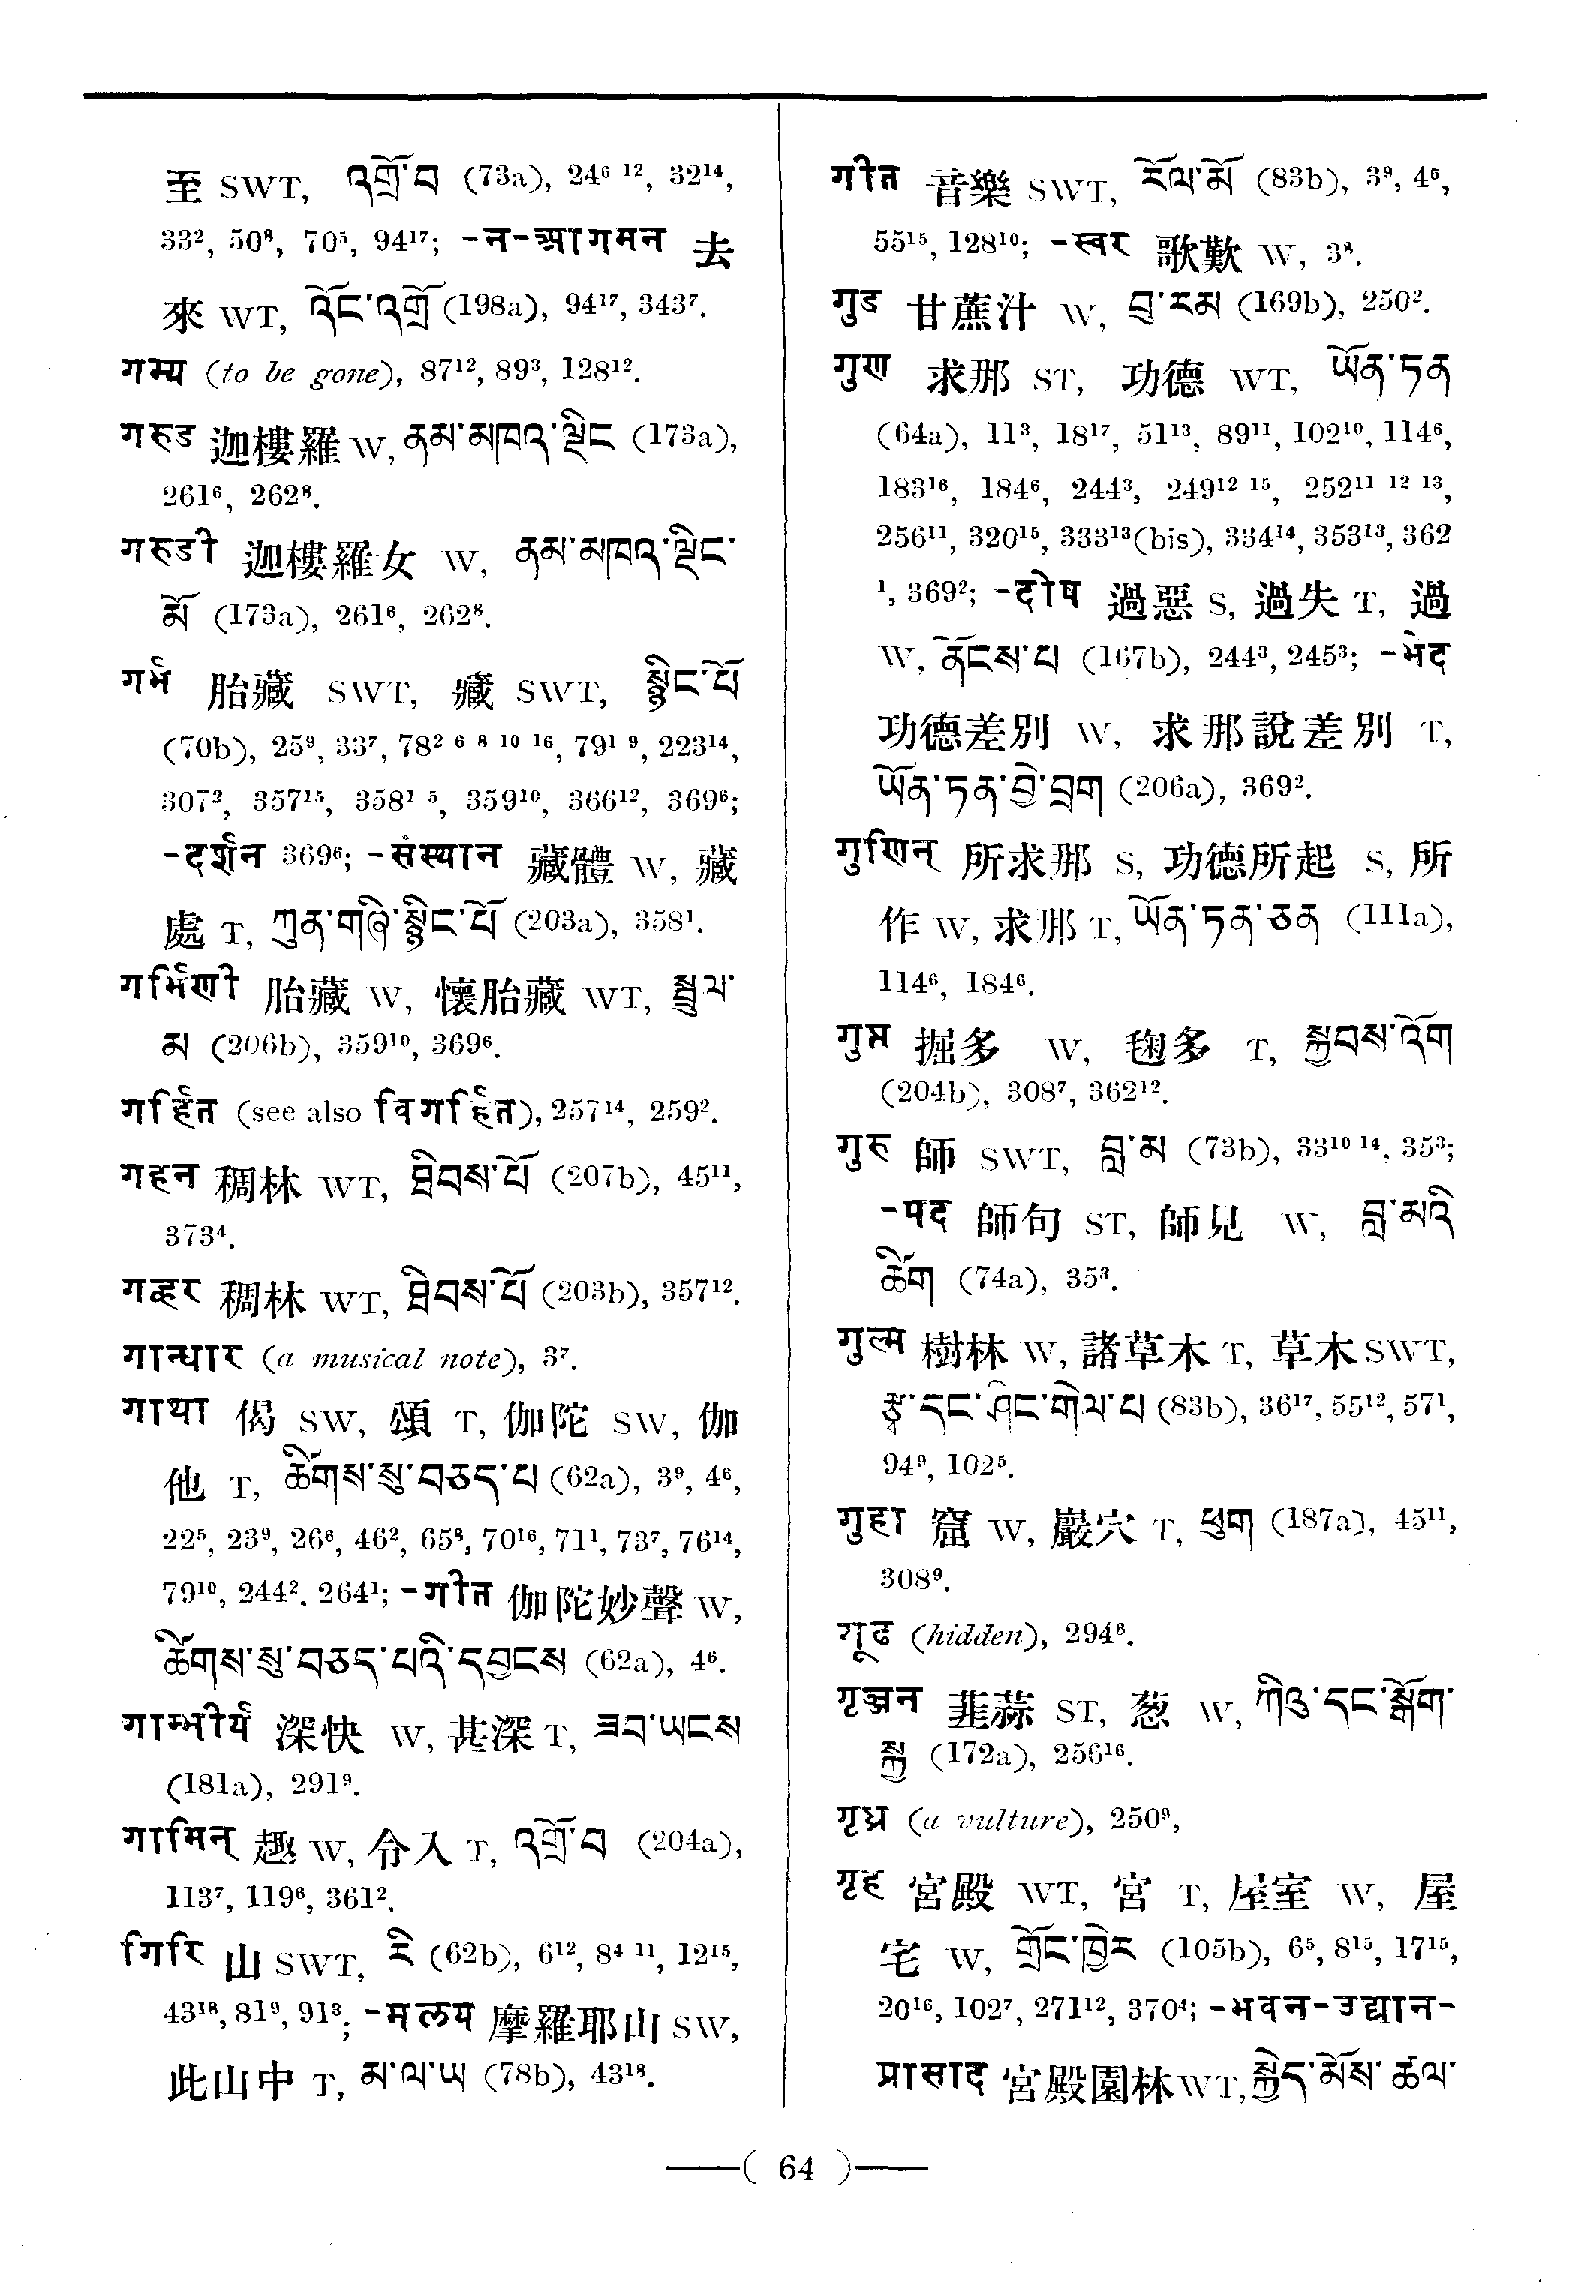 至 SWT, འགྲོ་བ (73a), 24⁶ ¹², 32¹⁴,
33², 50⁸, 70⁵, 94¹⁷; -न-आगमन 去
來 WT, འོང་འགྲོ (198a), 94¹⁷, 343⁷.
गम्य (to be gone), 87¹², 89³, 128¹².
गरुड 迦樓羅 W, ནམ་མཁའ་ལྡིང (173a),
261⁶, 262⁸.
गरुडी 迦樓羅女 W, ནམ་མཁའ་ལྡིང་
མོ (173a), 261⁶, 262⁸.
गर्भ 胎藏 SWT, 藏 SWT, སྙིང་པོ
(70b), 25⁹, 33⁷, 78² ⁶ ⁸ ¹⁰ ¹⁶, 79¹ ⁹, 223¹⁴,
307², 357¹⁵, 358¹ ⁵, 359¹⁰, 366¹², 369⁶;
-दर्शन 369⁶; -संस्थान 藏體 W, 藏
處 T, ཀུན་གཞི་སྙིང་པོ (203a), 358¹.
गर्भिणी 胎藏 W, 懷胎藏 WT, སྦྲུལ་
མ (206b), 359¹⁰, 369⁶.
गर्हित (see also विगर्हित), 257¹⁴, 259².
गहन 稠林 WT, ཐིབས་པོ (207b), 45¹¹,
373⁴.
गह्वर 稠林 WT, ཐིབས་པོ (203b), 357¹².
गान्धार (a musical note), 3⁷.
गाथा 偈 SW, 頌 T, 伽陀 SW, 伽
他 T, ཚིགས་སུ་བཅད་པ (62a), 3⁹, 4⁶,
22⁵, 23⁹, 26⁶, 46², 65⁸, 70¹⁶, 71¹, 73⁷, 76¹⁴,
79¹⁰, 244², 264¹; -गीत 伽陀妙聲 W,
ཚིགས་སུ་བཅད་པའི་དབྱངས (62a), 4⁶.
गाम्भीर्य 深快 W, 甚深 T, ཟབ་ཡངས
(181a), 291⁹.
गामिन् 趣 W, 令入 T, འགྲོ་བ (204a),
113⁷, 119⁶, 361².
गिरि 山 SWT, རི (62b), 6¹², 8⁴ ¹¹, 12¹⁵,
43¹⁸, 81⁹, 91³; -मलय 摩羅耶山 SW,
此山中 T, མ་ལ་ཡ (78b), 43¹⁸.
गीत 音樂 SWT, རོལ་མོ (83b), 3⁹, 4⁶,
55¹⁵, 128¹⁰; -स्वर 歌歎 W, 3⁸.
गुड 甘蔗汁 W, བུ་རམ (169b), 250².
गुण 求那 ST, 功德 WT, ཡོན་ཏན
(64a), 11³, 18¹⁷, 51¹³, 89¹¹, 102¹⁰, 114⁶,
183¹⁶, 184⁶, 244³, 249¹² ¹⁵, 252¹¹ ¹² ¹³,
256¹¹, 320¹⁵, 333¹³(bis), 334¹⁴, 353¹³, 362
¹, 369²; -दोष 過惡 S, 過失 T, 過
W, ནོངས་པ (167b), 244³, 245³; -भेद
功德差別 W, 求那說差別 T,
ཡོན་ཏན་བྱེ་བྲག (206a), 369².
गुणिन् 所求那 S, 功德所起 S, 所
作 W, 求那 T, ཡོན་ཏན་ཅན (111a),
114⁶, 184⁶.
गुप्त 掘多 W, 毱多 T, སྐྱབས་འོག
(204b), 308⁷, 362¹².
गुरु 師 SWT, བླ་མ (73b), 33¹⁰ ¹⁴, 35³;
-पद 師句 ST, 師見 W, བླ་མའི
ཚིག (74a), 35³.
गुल्म 樹林 W, 諸草木 T, 草木 SWT,
རྩྭ་དང་ཤིང་གེལ་པ (83b), 36¹⁷, 55¹², 57¹,
94⁹, 102⁵.
गुहा 窟 W, 巖穴 T, ཕུག (187a), 45¹¹,
308⁹.
गूढ (hidden), 294⁸.
गृञ्जन 韮蒜 ST, 葱 W, ཀེའུ་དང་སྒོག་
སྐྱ (172a), 256¹⁶.
गृध्र (a vulture), 250⁹,
गृह 宮殿 WT, 宮 T, 屋室 W, 屋
宅 W, གྲོང་ཁྱེར (105b), 6⁵, 8¹⁵, 17¹⁵,
20¹⁶, 102⁷, 271¹², 370⁴; -भवन-उद्यान-
प्रासाद 宮殿園林 WT, སྐྱེད་མོས་ཚལ་
—( 64 )—